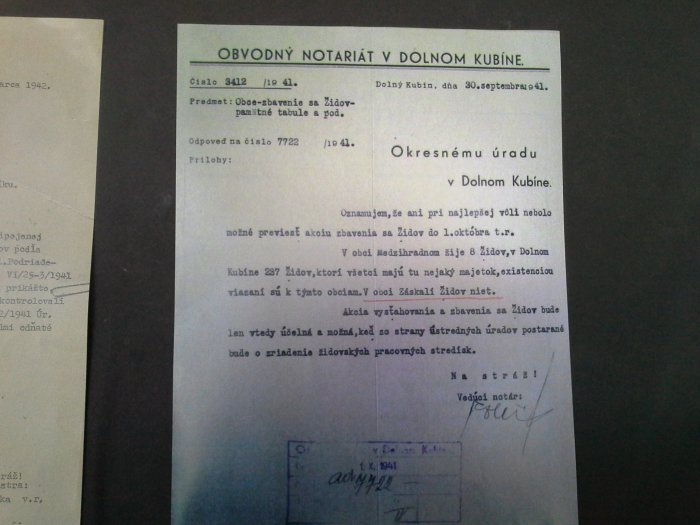 arca 1942.
íku.
ipojenej
ov podľa
.Podriade-
VI/29-3/1941
prikážte
kontrolovali
2/1941 Úr.
ými odňaté
ráž!
stra:
ka v.r.
OBVODNÝ NOTARIÁT V DOLNOM KUBÍNE.
Číslo 3412 /19 41.
Dolný Kubín, dňa 30.septembra,1941.
Predmet: Obce-zbavenie sa Židov-
pamätné tabule a pod.
Odpoveď na číslo 7722 /19 41.
Prílohy:
Okresnému úradu
v Dolnom Kubíne.
Oznamujem,že ani pri najlepšej vôli nebolo
možné previesť akciu zbavenia sa Židov do 1.októbra t.r.
V obci Medzihradnom žije 8 Židov,v Dolnom
Kubíne 237 Židov,ktorí všetci majú tu nejaký majetok,existenciou
viazaní sú k týmto obciam.V obci Záskalí Židov niet.
Akcia vysťahovania a zbavenia sa Židov bude
len vtedy účelná a možná,keď zo strany ústredných úradov postarané
bude o zriadenie židovských pracovných stredísk.
Na stráž!
Vedúci notár:
v Dolnom Kubíne
1.X.1941
ad 7722
IV